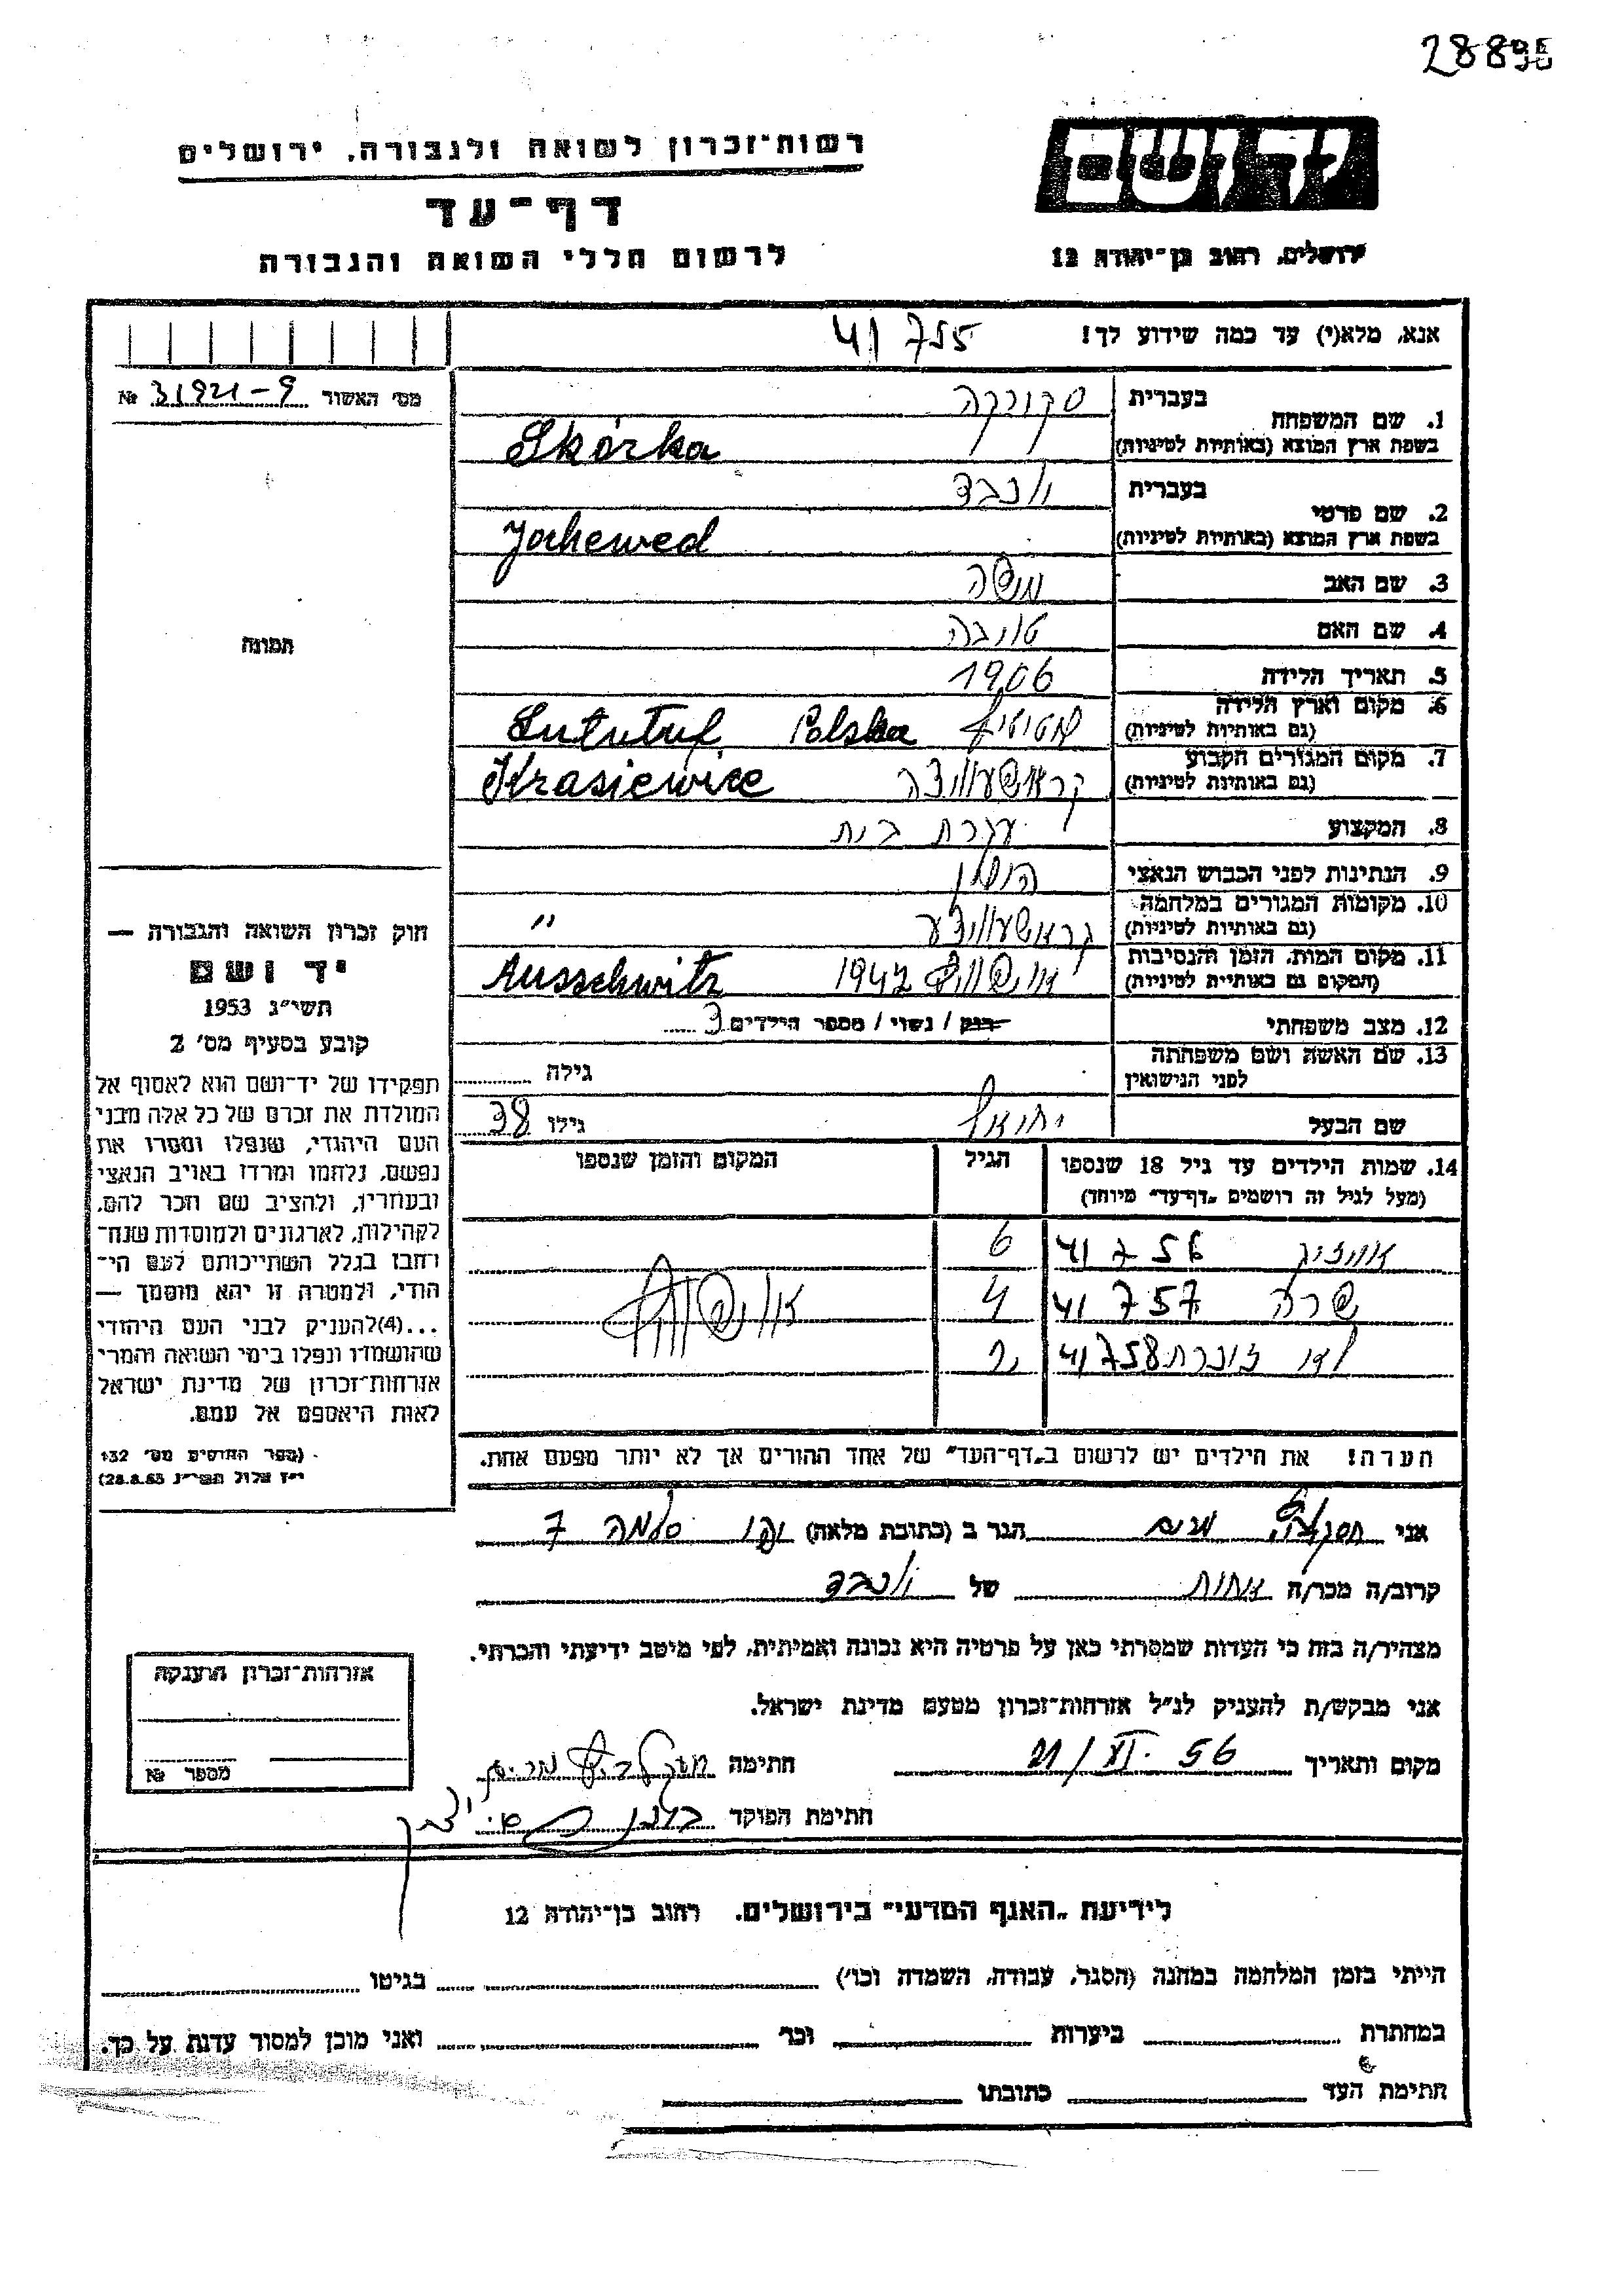 28895
רשות־זכרון לשואה ולגבורה, ירושלים
יד ושם
דף־עד
לרשום חללי השואה והגבורה
ירושלים, רחוב בן־יהודה 12
אנא, מלא(י) עד כמה שידוע לך! 41755
מס׳ האשור № 31921-9
1. שם המשפחה
בעברית סקורקה
בשפת ארץ המוצא (באותיות לטיניות) Skórka
2. שם פרטי
בעברית יוכבד
בשפת ארץ המוצא (באותיות לטיניות) Jochewed
3. שם האב משה
4. שם האם טויבה
5. תאריך הלידה 1906
6. מקום וארץ הלידה
(גם באותיות לטיניות) Lututuf Polska
7. מקום המגורים הקבוע
(גם באותיות לטיניות) קראשעוויצה Krasiewice
8. המקצוע עקרת בית
9. הנתינות לפני הכבוש הנאצי פולנית
10. מקומות המגורים במלחמה
(גם באותיות לטיניות) קראשעוויצע "
11. מקום המות, הזמן והנסיבות
(המקום גם באותיות לטיניות) אושוויץ 1942 Ausschwitz
12. מצב משפחתי רווק / נשוי / מספר הילדים 3
13. שם האשה ושם משפחתה
לפני הנישואין גילה
שם הבעל גילו 38
14. שמות הילדים עד גיל 18 שנספו
(מעל לגיל זה רושמים „דף־עד״ מיוחד)
הגיל
המקום והזמן שנספו
41756 6
שרה 41757 4
41758 2
אושוויץ
הערה! את הילדים יש לרשום ב„דף־העד״ של אחד ההורים אך לא יותר מפעם אחת.
תמונה
חוק זכרון השואה והגבורה —
יד ושם
תשי״ג 1953
קובע בסעיף מס׳ 2
תפקידו של יד־ושם הוא לאסוף אל
המולדת את זכרם של כל אלה מבני
העם היהודי, שנפלו ומסרו את
נפשם, נלחמו ומרדו באויב הנאצי
ובעוזריו, ולהציב שם וזכר להם,
לקהילות, לארגונים ולמוסדות שנח־
רבו בגלל השתייכותם לעם הי־
הודי, ולמטרה זו יהא מוסמך —
...(4)להעניק לבני העם היהודי
שהושמדו ונפלו בימי השואה והמרי
אזרחות־זכרון של מדינת ישראל
לאות היאספם אל עמם.
(ספר החוקים מס׳ 132
י״ז אלול תשי״ג 28.8.53)
אני מרים הגר ב (כתובת מלאה) יפו סלמה 7
קרוב/ה מכר/ה אחות של יוכבד
מצהיר/ה בזה כי העדות שמסרתי כאן על פרטיה היא נכונה ואמיתית, לפי מיטב ידיעתי והכרתי.
אני מבקש/ת להעניק לנ״ל אזרחות־זכרון מטעם מדינת ישראל.
מקום ותאריך 21/VI.56 חתימה מרים
חתימת הפוקד
אזרחות־זכרון הוענקה
מספר №
לידיעת „האגף המדעי״ בירושלים. רחוב בן־יהודה 12
הייתי בזמן המלחמה במחנה (הסגר, עבודה, השמדה וכו׳) בגיטו
במחתרת ביערות וכו׳ ואני מוכן למסור עדות על כך.
חתימת העד כתובתו